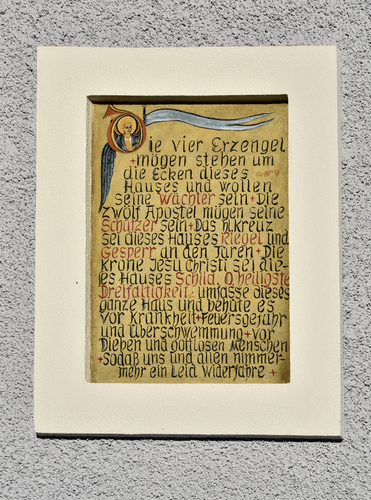 Die vier Erzengel
+mögen stehen um
die Ecken dieses
Hauses und wollen
seine Wächter sein+Die
zwölf Apostel mögen seine
Schützer sein+Das hl.kreuz
sei dieses Hauses Riegel und
Gesperr an den Türen+Die
krone Jesu Christi sei die-
ses Hauses Schild, O heiligste
Dreifaltigkeit: umfasse dieses
ganze Haus und behüte es
vor Krankheit+Feuersgefahr
und überschwemmung+vor
Dieben und gottlosen Menschen
+sodaß uns und allen nimmer-
mehr ein Leid widerfahre+